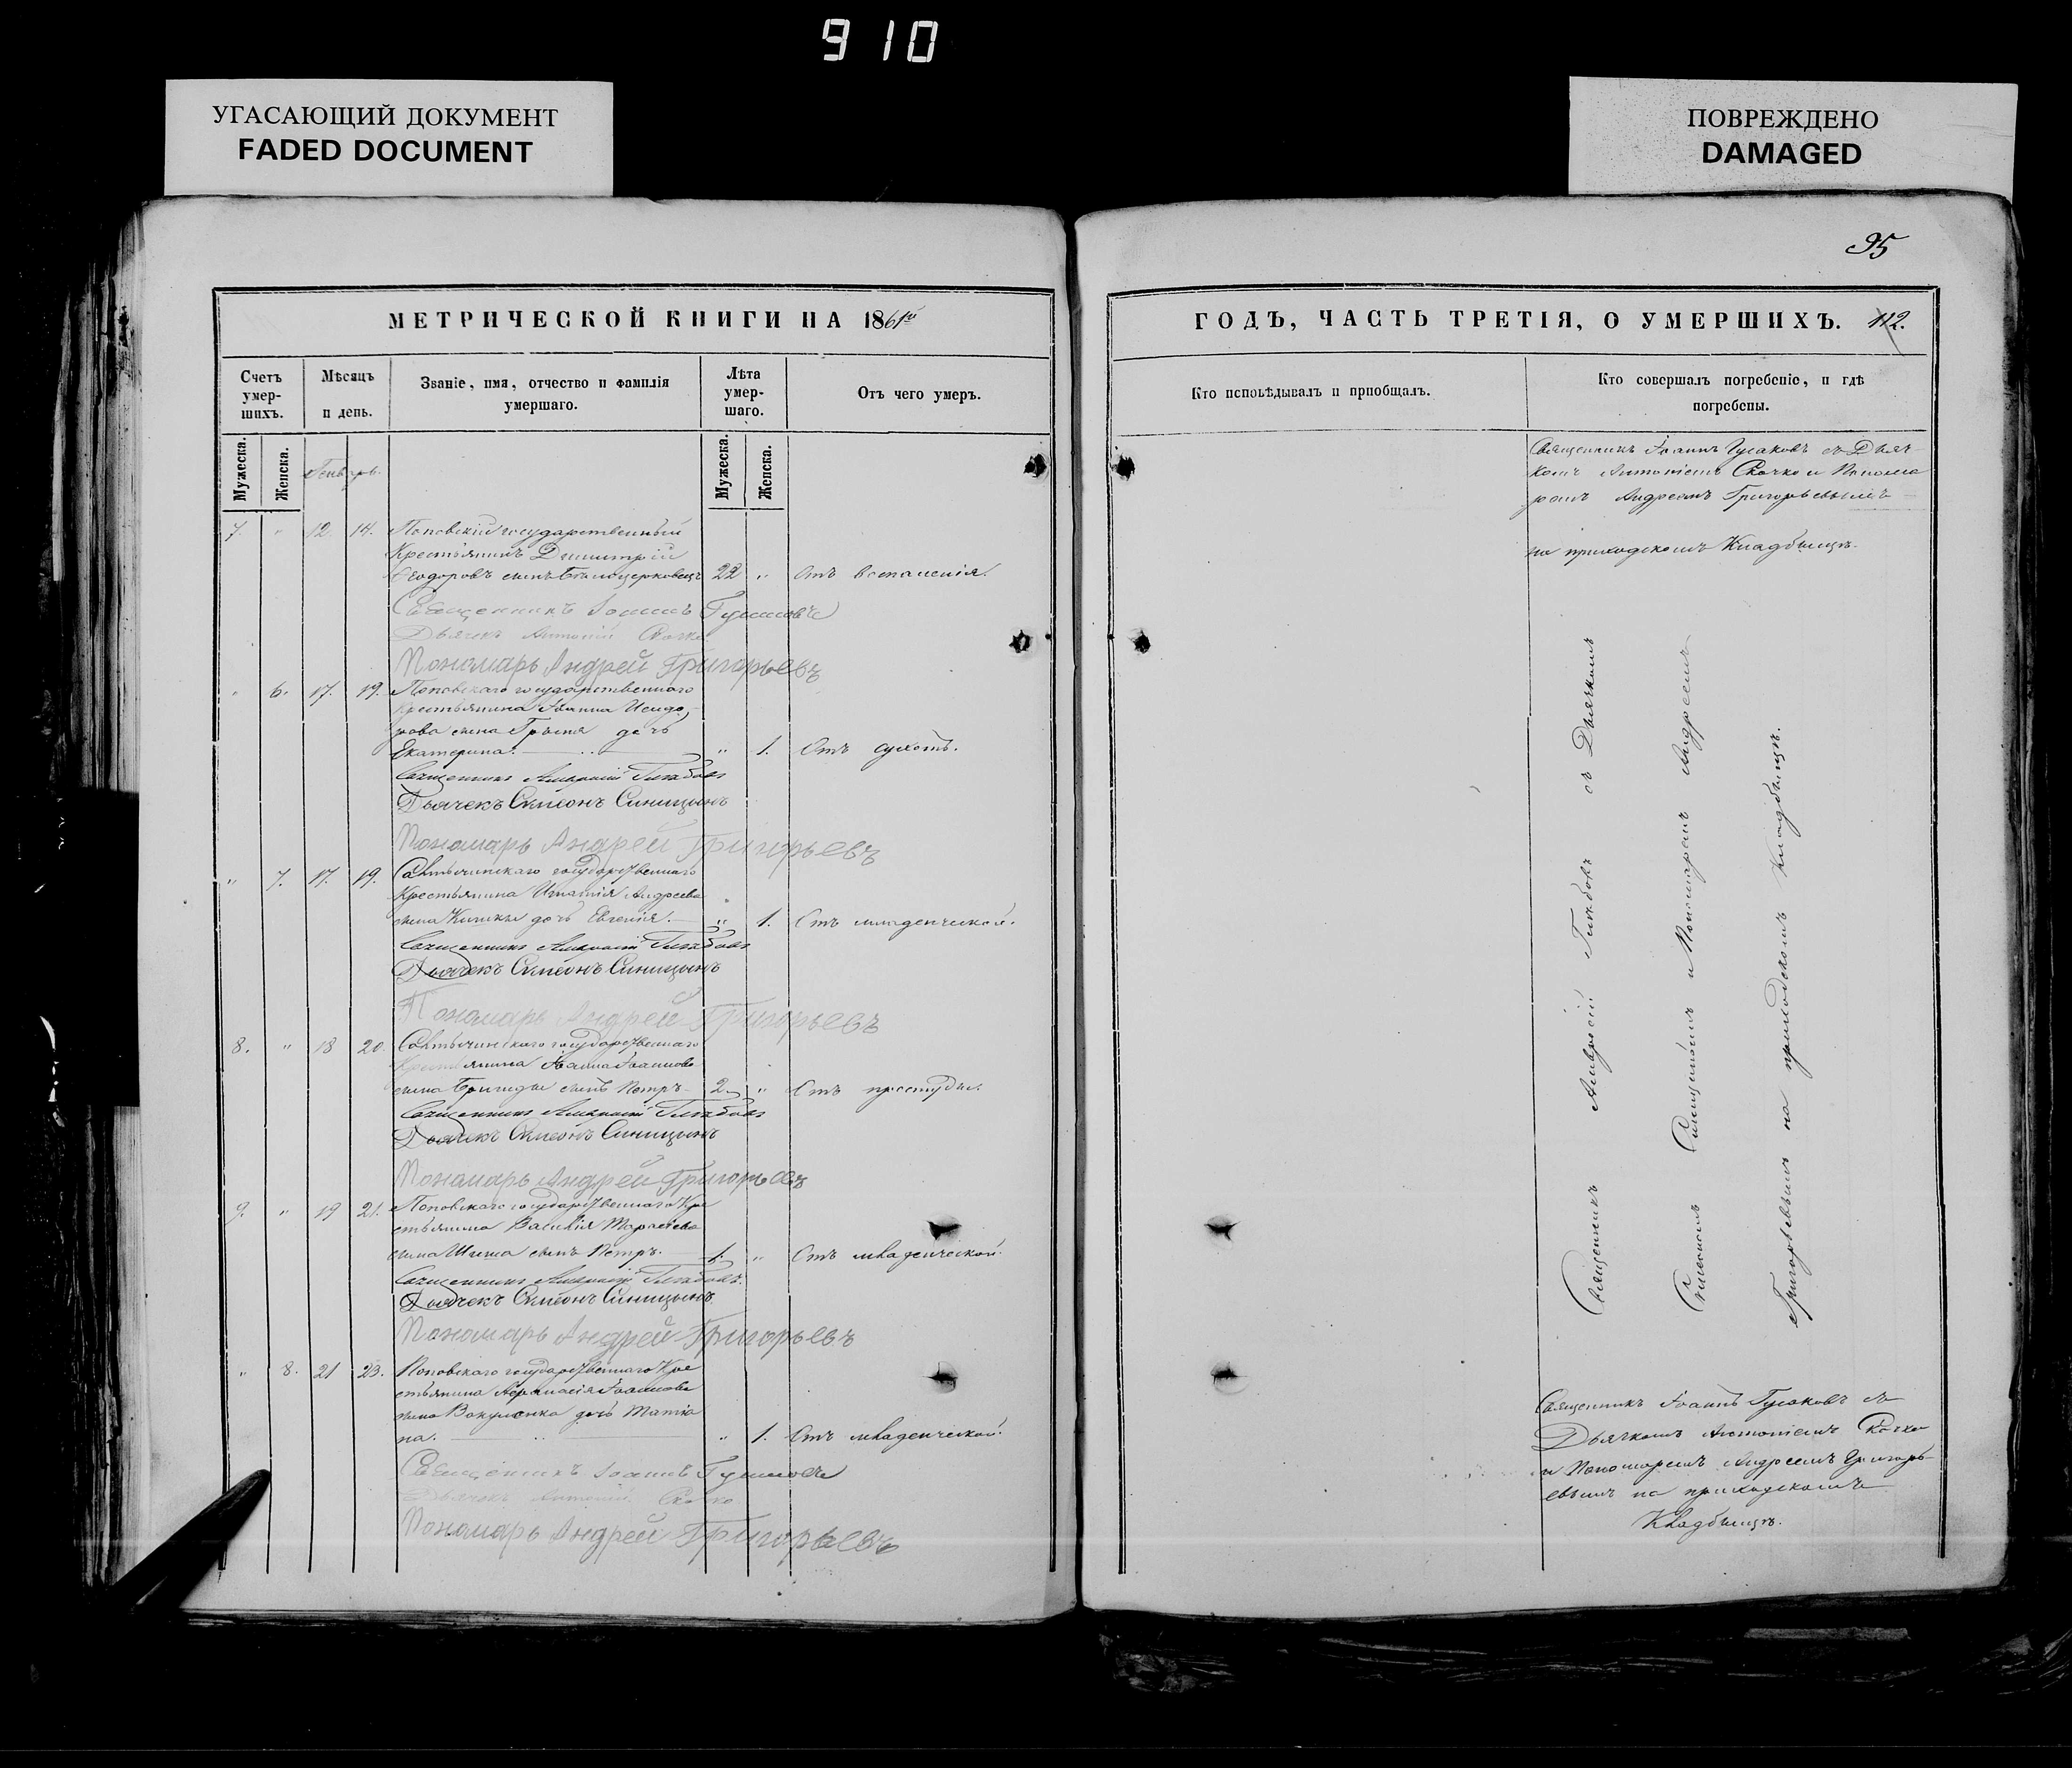 910
УГАСАЮЩИЙ ДОКУМЕНТ
FADED DOCUMENT
ПОВРЕЖДЕНО
DAMAGED
95
МЕТРИЧЕСКОЙ КНИГИ НА 1861й
Счетъ умер-
шихъ.
Мѣсяцъ
и день.
Званіе, имя, отчество и фамилія
умершаго.
Лѣта
умер-
шаго.
Отъ чего умеръ.
Мужеска.
Женска.
Генварь.
Мужеска.
Женска.
7. " 12 14. Поповскій государственный
Крестьянинъ Димитрій
Ѳеодоровъ сынъ Бѣлоцерковецъ 22 " Отъ воспаленія.
Священникъ Іоаннъ Гусаковъ
Дьячекъ Антоній Скочко
Пономарь Андрей Григорьевъ
" 6. 17. 19. Поповскаго государственнаго
Крестьянина Іоанна Исидо-
рова сына дочь
Екатерина. " 1. Отъ сухотъ.
Священникъ Амвросій Глѣбовъ
Дьячекъ Симеонъ Синицынъ
Пономарь Андрей Григорьевъ
" 7. 17. 19. государственнаго
Крестьянина Игнатія Андреева
сына дочь Евгенія. " 1. Отъ младенческой.
Священникъ Амвросій Глѣбовъ
Дьячекъ Симеонъ Синицынъ
Пономарь Андрей Григорьевъ
8. " 18 20. государственнаго
Крестьянина Іоанна Іоаннова
сына Бригиды сынъ Петръ 2. " Отъ простуды.
Священникъ Амвросій Глѣбовъ
Дьячекъ Симеонъ Синицынъ
Пономарь Андрей Григорьевъ
9. " 19 21. Поповскаго государственнаго Кре
стьянина Василія
сына Шиша сынъ Петръ. 1. " Отъ младенческой.
Священникъ Амвросій Глѣбовъ.
Дьячекъ Симеонъ Синицынъ
Пономарь Андрей Григорьевъ
" 8. 21 23. Поповскаго государственнаго Кре
стьянина Аѳанасія Іоаннова
сына Вакуленка дочь Татіа
на. " 1. Отъ младенческой.
Священникъ Іоаннъ Гусаковъ
Дьячекъ Антоній Скочко
Пономарь Андрей Григорьевъ
ГОДЪ, ЧАСТЬ ТРЕТІЯ, О УМЕРШИХЪ. 112.
Кто исповѣдывалъ и пріобщалъ.
Кто совершалъ погребеніе, и гдѣ
погребены.
Священникъ Іоаннъ Гусаковъ съ Дьяч-
комъ Антоніемъ Скочко и Понома
ремъ Андреемъ Григорьевымъ
на приходскомъ Кладбищѣ.
Священникъ Амвросій Глѣбовъ съ Дьячкомъ
Симеономъ Синицынымъ и Пономаремъ Андреемъ
Григорьевымъ на приходскомъ Кладбищѣ.
Священникъ Іоаннъ Гусаковъ съ
Дьячкомъ Антоніемъ Скочко
и Пономаремъ Андреемъ Григорь-
евымъ на приходскомъ
Кладбищѣ.